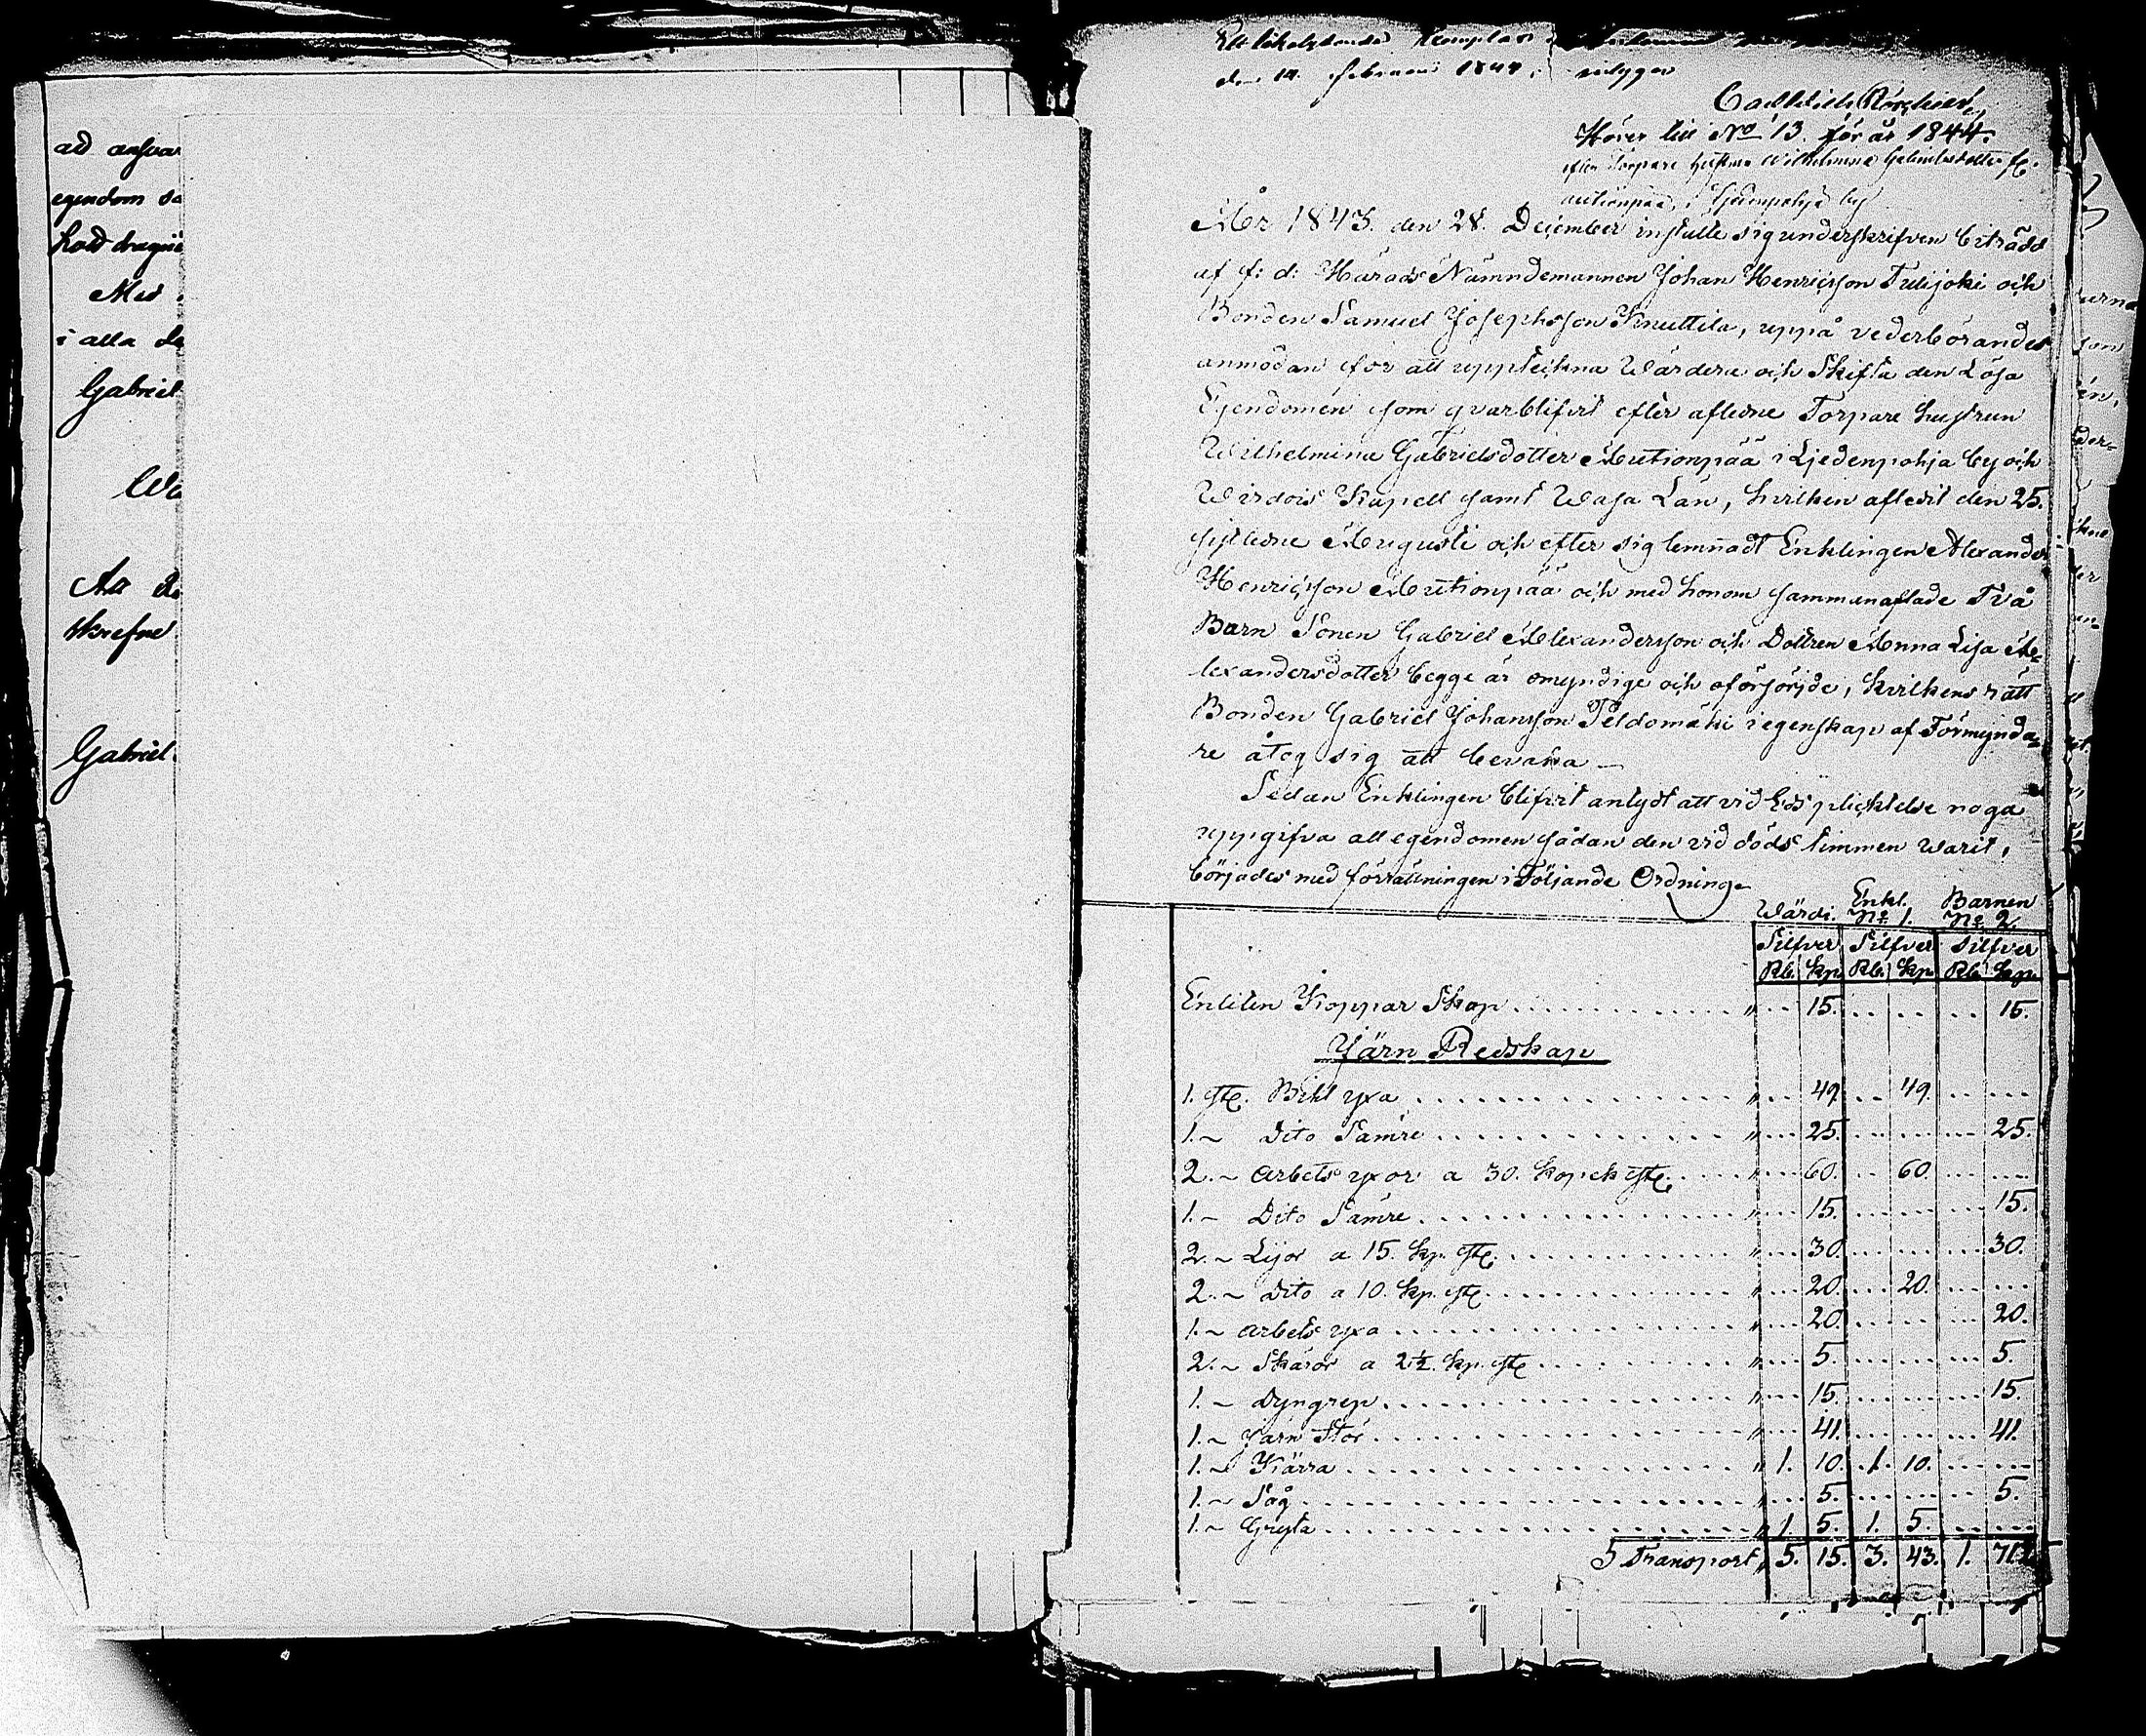 ad ansva
egendom
Med
i alla
Gabriel
skrefne
Gabriel
den 14 Februari 1844, intygar
Hörer till No 13 för år 1844.
efter Torpare hustrun Wilhelmina Gabrielsdotter
Autionpää, i Ljedenpohja by
År 1843. den 28. December instälte sig underskrifven biträdd
af f: d: Härads Nämndemannen Johan Henricsson Tulijoki och
Bonden Samuel Josephsson Knuttila, uppå vederbörandes
anmodan för att uppteckna Wärdera och Skifta den Lösa
Egendomen som qvarblifvit efter aflidne Torpare hustrun
Wilhelmina Gabrielsdotter Autionpää i Ljedenpohja by och
Wirdois Kapell samt Wasa Län, hvilken afledit den 25.
sistledne Augusti och efter sig lemnadt Enklingen Alexander
Henricsson Autionpää och med honom sammanaflade Två
Barn Sonen Gabriel Alexandersson och Dottren Anna Lisa A-
lexandersdotter begge är omyndige och oförsörjde, hvilkens rätt
Bonden Gabriel Johansson Peldomäki i egenskap af Förmynda-
re åtog sig att bevaka —
Sedan Enklingen blifvit antydt att vid Eds plichtelse noga
uppgifva all egendomen sådan den vid döds timmen warit,
börjades med förrättningen i Följande Ordning.
Wärdi. Enkl. No 1. Barnen No 2
Silfver Silfver Silfver
Rb. kp. Rb. kp. Rb. kp.
En liten Koppar Skop . . . " 15. 15.
Järn Redskap
1. st. Bihl yxa . . . " 49. 49.
1. ~ Dito Sämre . . . " 25. 25.
2. ~ Arbets yxor a 30. kopek st. . . . " 60. 60.
1. ~ Dito Sämre . . . " 15. 15.
2. ~ Lijor a 15. kp. st. . . . " 30. 30.
2. ~ Dito a 10. kp. st. . . . " 20. 20.
1. ~ arbets yxa . . . " 20. 20.
2. ~ Skäror a 2½. kp. st. . . . " 5. 5.
1. ~ Dyngrep . . . " 15. 15.
1. ~ Järn Stör . . . " 41. 41.
1. ~ Kärra . . . " 1. 10. 1. 10.
1. ~ Såg . . . " 5. 5.
1. ~ Gryta . . . " 1. 5. 1. 5.
Transport 5. 15. 3. 43. 1. 71.